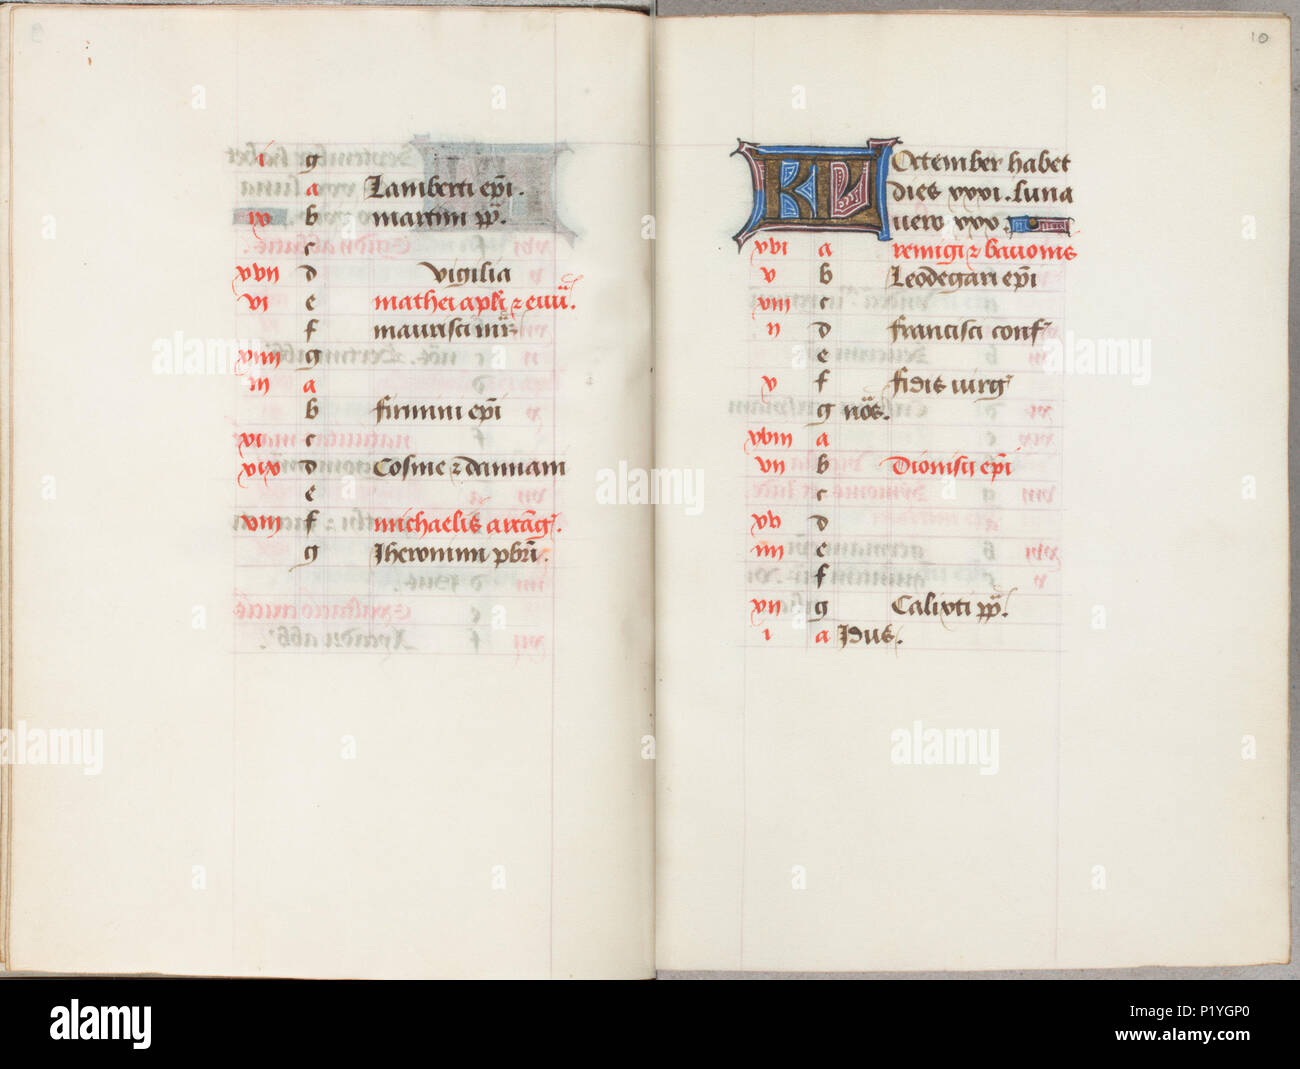 i g
a Lamberti ep̄i.
ix b martini pp̄.
c
xvii d vigilia
vi e mathei apl̄i ⁊ euu̅.
f mauricii mr̄
xiiii g
iii a
b firmini ep̄i
xi c
xix d Cosme ⁊ damiani
e
viii f michaelis archāg.
g Jheronimi pbrī.
10
KL Octember habet
dies xxxi. luna
uero xxx.
xvi a remigii ⁊ bauonis
v b Leodegari ep̄i
xiii c
ii d francisci conf.
e
x f fidis uirg
g nōs.
xviii a
vii b Dionisii ep̄i
c
xv d
iiii e
f
xii g Calixti pp̄.
i a Jdus.
alamy
Image ID: P1YGP0
www.alamy.com